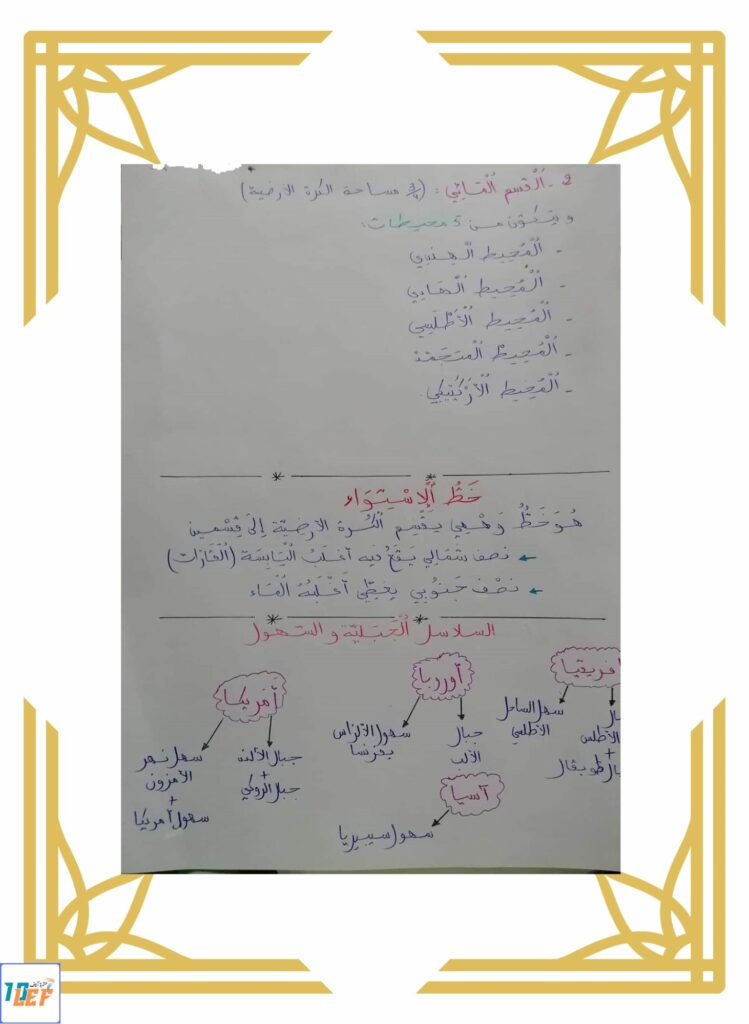 2 - اَلْقِسم اَلْمَائِي : (3/4 مساحة الكرة الأرضية)
و يتكوّن من 5 محيطات:
- اَلْمُحِيط اَلْهِنْدِي
- اَلْمُحِيط اَلْهَادِي
- اَلْمُحِيط اَلْأَطْلَسِي
- اَلْمُحِيطْ اَلْمتجَمّد
- اَلْمُحِيط اَلْأَرْكْتِيكِي.
خَطُّ اَلْإِسْتِوَاء
هُوَ خَطٌّ وَهْمِي يَقْسِم اَلْكُرة الأرضِيّة إلَى قِسْمين
← نصف شَمَالِي يَقَعُ فيه أغلَبُ اَلْيَابِسَة (اَلْقَارات)
← نَصْف جَنُوبِي يغطِّي أَغْلَبُهُ اَلْمَاء
السلاسل اَلْجَبَلِيّة و السّهول
إفريقيا
سهل الساحل الأطلسي
الأطلس
+
طوبقال
أوروبا
جبال الألب
سهول الألزاس بفرنسا
أمريكا
جبال الألند
+
جبال الروكي
سهل نهر الأمزون
+
سهول أمريكا
آسيا
سهول سيبيريا
10LEF